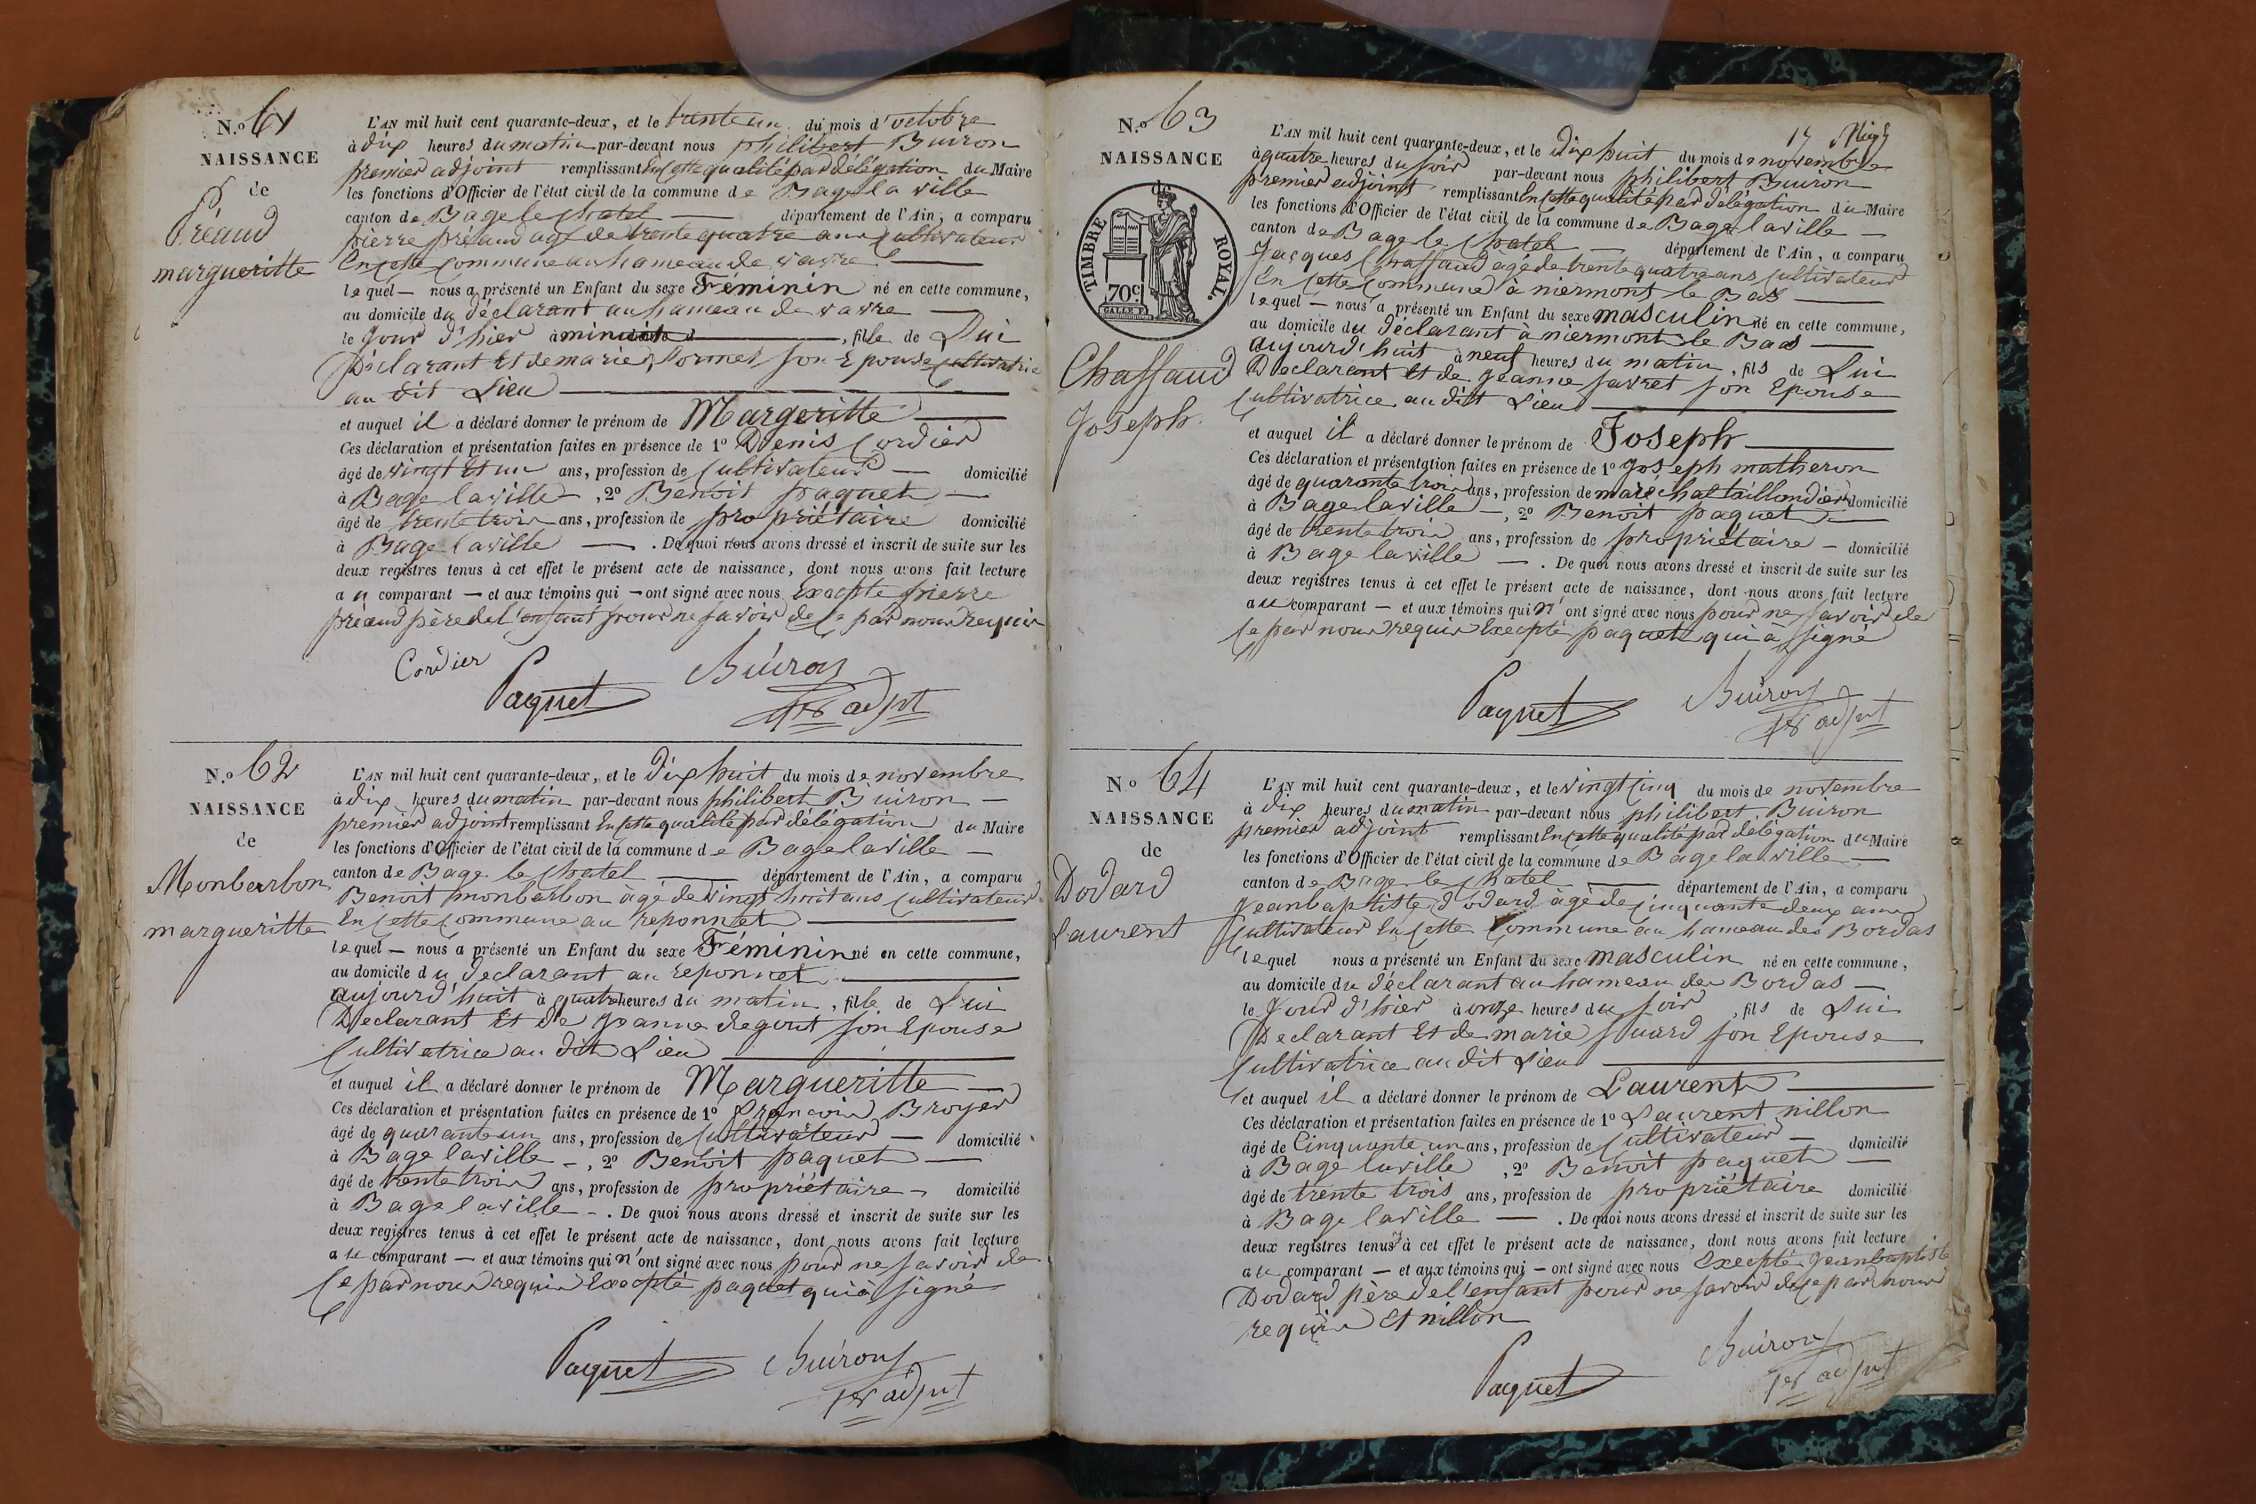 N.o 61
NAISSANCE
de
Préaud
margueritte
L'AN mil huit cent quarante-deux, et le trente un du mois d'octobre
à dix heures du matin par-devant nous philibert Buiron
premier adjoint remplissant En cette qualité par délégation du Maire
les fonctions d'Officier de l'état civil de la commune de Bage la ville
canton de Bage le chatel — département de l'Ain, a comparu
pierre préaud agé de trente quatre ans cultivateur
En cette commune au hameau de vavre —
lequel — nous a présenté un Enfant du sexe Féminin né en cette commune,
au domicile du déclarant au hameau de vavre —
le Jour d'hier à minuit —, fille de Lui
Déclarant Et de marieOrmet son Epouse cultivatrice
au dit Lieu —
et auquel il a déclaré donner le prénom de Margeritte —
Ces déclaration et présentation faites en présence de 1o Denis Cordier
âgé de vingt Et un ans, profession de Cultivateur — domicilié
à Bage laville —, 2o Benoit paquet —
âgé de trente trois ans, profession de propriétaire domicilié
à Bage laville — . De quoi nous avons dressé et inscrit de suite sur les
deux registres tenus à cet effet le présent acte de naissance, dont nous avons fait lecture
au comparant — et aux témoins qui — ont signé avec nous Excepté pierre
préaud père de l'enfant pour ne savoir de ce par nous requis
Cordier
Paquet
Buiron
1er adjt
N.o 62
NAISSANCE
de
Monbarbon
margueritte
L'AN mil huit cent quarante-deux, et le dix huit du mois de novembre
à dix heures du matin par-devant nous philibert Buiron —
premier adjoint remplissant En cette qualité par délégation du Maire
les fonctions d'Officier de l'état civil de la commune de Bage laville —
canton de Bage le chatel — département de l'Ain, a comparu
Benoit monbarbon âgé de vingt huit ans cultivateur
En cette commune au reponnet —
lequel — nous a présenté un Enfant du sexe Féminin né en cette commune,
au domicile du declarant au reponnet —
aujourd'huit à quatre heures du matin, fille de Lui
Declarant Et de Jeanne degout son Epouse
Cultivatrice au dit Lieu —
et auquel il a déclaré donner le prénom de Margueritte —
Ces déclaration et présentation faites en présence de 1o François Broyer
âgé de quarante un ans, profession de Cultivateur — domicilié
à Bage laville —, 2o Benoit paquet —
âgé de trente trois ans, profession de propriétaire — domicilié
à Bage laville — . De quoi nous avons dressé et inscrit de suite sur les
deux registres tenus à cet effet le présent acte de naissance, dont nous avons fait lecture
au comparant — et aux témoins qui n'ont signé avec nous pour ne savoir de
ce par nous requis Excepté paquet qui à signé
Paquet
Buiron
1er adjnt
N.o 63
NAISSANCE
de
TIMBRE ROYAL.
70c
Chaffaud
Joseph.
L'AN mil huit cent quarante-deux, et le dix huit du mois de novembre
à quatre heures du soir par-devant nous philibert Buiron
premier adjoint remplissant En cette qualité par délégation du Maire
les fonctions d'Officier de l'état civil de la commune de Bage laville —
canton de Bage le chatel — département de l'Ain, a comparu
Jacques Chaffaud âgé de trente quatre ans cultivateur
En cette commune à niermont le Bas —
lequel — nous a présenté un Enfant du sexe masculin né en cette commune,
au domicile du déclarant à niermont le Bas —
aujourd'huit à neuf heures du matin, fils de Lui
Declarant Et de Jeanne favret son Epouse
Cultivatrice au dit Lieu —
et auquel il a déclaré donner le prénom de Joseph —
Ces déclaration et présentation faites en présence de 1o Joseph matheron
âgé de quarante trois ans, profession de maréchal taillandier domicilié
à Bage laville —, 2o Benoit paquet —
âgé de trente trois ans, profession de propriétaire — domicilié
à Bage laville — . De quoi nous avons dressé et inscrit de suite sur les
deux registres tenus à cet effet le présent acte de naissance, dont nous avons fait lecture
au comparant — et aux témoins qui n'ont signé avec nous pour ne savoir de
ce par nous requis Excepté paquet qui à signé
Paquet
Buiron
1er adjnt
No 64
NAISSANCE
de
Dodard
Laurent
L'AN mil huit cent quarante-deux, et le vingt cinq du mois de novembre
à dix heures du matin par-devant nous philibert Buiron
premier adjoint remplissant En cette qualité par délégation du Maire
les fonctions d'Officier de l'état civil de la commune de Bage laville —
canton de Bage le chatel — département de l'Ain, a comparu
Jeanbaptiste Dodard âgé de cinquante deux ans
Cultivateur En cette Commune au hameau des Bordas
lequel nous a présenté un Enfant du sexe masculin né en cette commune,
au domicile du déclarant au hameau des Bordas —
le Jour d'hier à onze heures du soir, fils de Lui
Declarant Et de marie suard son Epouse
Cultivatrice au dit Lieu —
et auquel il a déclaré donner le prénom de Laurent —
Ces déclaration et présentation faites en présence de 1o Laurent nillon
âgé de Cinquante un ans, profession de Cultivateur — domicilié
à Bage laville, 2o Benoit paquet —
âgé de trente trois ans, profession de propriétaire domicilié
à Bage laville — . De quoi nous avons dressé et inscrit de suite sur les
deux registres tenus à cet effet le présent acte de naissance, dont nous avons fait lecture
au comparant — et aux témoins qui — ont signé avec nous Excepté Jeanbaptiste
Dodard père de l'enfant pour ne savoir de ce par nous
requis Et nillon
Paquet
Buiron
1er adjnt